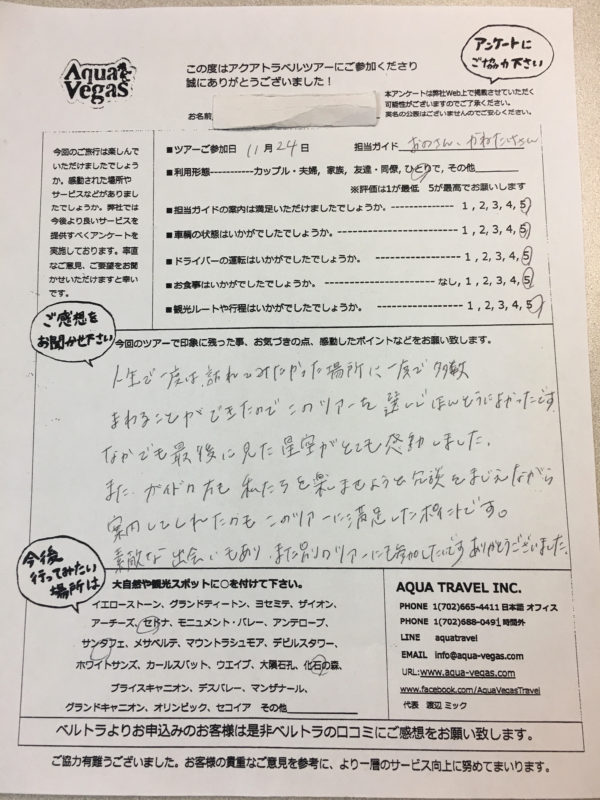 Aqua Vegas
この度はアクアトラベルツアーにご参加くださり
誠にありがとうございました！
アンケートに
ご協力下さい
本アンケートは弊社Web上で掲載させていただく
可能性がございますのでご了承ください。
実名の公表はございませんのでご安心ください。
お名前
今回のご旅行は楽しんで
いただけましたでしょう
か。感動された場所や
サービスなどがありまし
たでしょうか。弊社では
今後より良いサービスを
提供すべくアンケートを
実施しております。率直
なご意見、ご要望をお聞
かせいただけますと幸い
です。
■ツアーご参加日 11月24日 担当ガイド おのさん、かねたけさん
■利用形態-----------カップル・夫婦, 家族, 友達・同僚, ひとりで, その他
※評価は1が最低 5が最高でお願いします
■担当ガイドの案内は満足いただけましたでしょうか。---------- 1 , 2, 3, 4, 5
■車輌の状態はいかがでしたでしょうか。-------------------- 1 , 2, 3, 4, 5
■ドライバーの運転はいかがでしたでしょうか。---------------- 1 , 2, 3, 4, 5
■お食事はいかがでしたでしょうか。-------------------- なし, 1 , 2, 3, 4, 5
■観光ルートや行程はいかがでしたでしょうか。---------------- 1 , 2, 3, 4, 5
ご感想を
お聞かせ下さい
今回のツアーで印象に残った事、お気づきの点、感動したポイントなどをお願い致します。
人生で一度は訪れてみたかった場所に一度で多数
まわることができたのでこのツアーを選んでほんとうによかったです
なかでも最後に見た星空がとても感動しました。
また ガイドの方も 私たちを楽しませようと冗談をまじえながら
案内してくれたのも このツアーに満足したポイントです。
素敵な出会いもあり、また別のツアーにも参加したいです ありがとうございました。
今後
行ってみたい
場所は
大自然や観光スポットに○を付けて下さい。
イエローストーン、グランドティートン、ヨセミテ、ザイオン、
アーチーズ、セドナ、モニュメント・バレー、アンテロープ、
サンタフェ、メサベルテ、マウントラシュモア、デビルスタワー、
ホワイトサンズ、カールスバット、ウエイブ、大隕石孔、化石の森、
ブライスキャニオン、デスバレー、マンザナール、
グランドキャニオン、オリンピック、セコイア その他
AQUA TRAVEL INC.
PHONE 1(702)665-4411 日本語 オフィス
PHONE 1(702)688-0491 時間外
LINE aquatravel
EMAIL info@aqua-vegas.com
URL:www.aqua-vegas.com
www.facebook.com/AquaVegasTravel
代表 渡辺 ミック
ベルトラよりお申込みのお客様は是非ベルトラの口コミにご感想をお願い致します。
ご協力有難うございました。お客様の貴重なご意見を参考に、より一層のサービス向上に努めてまいります。